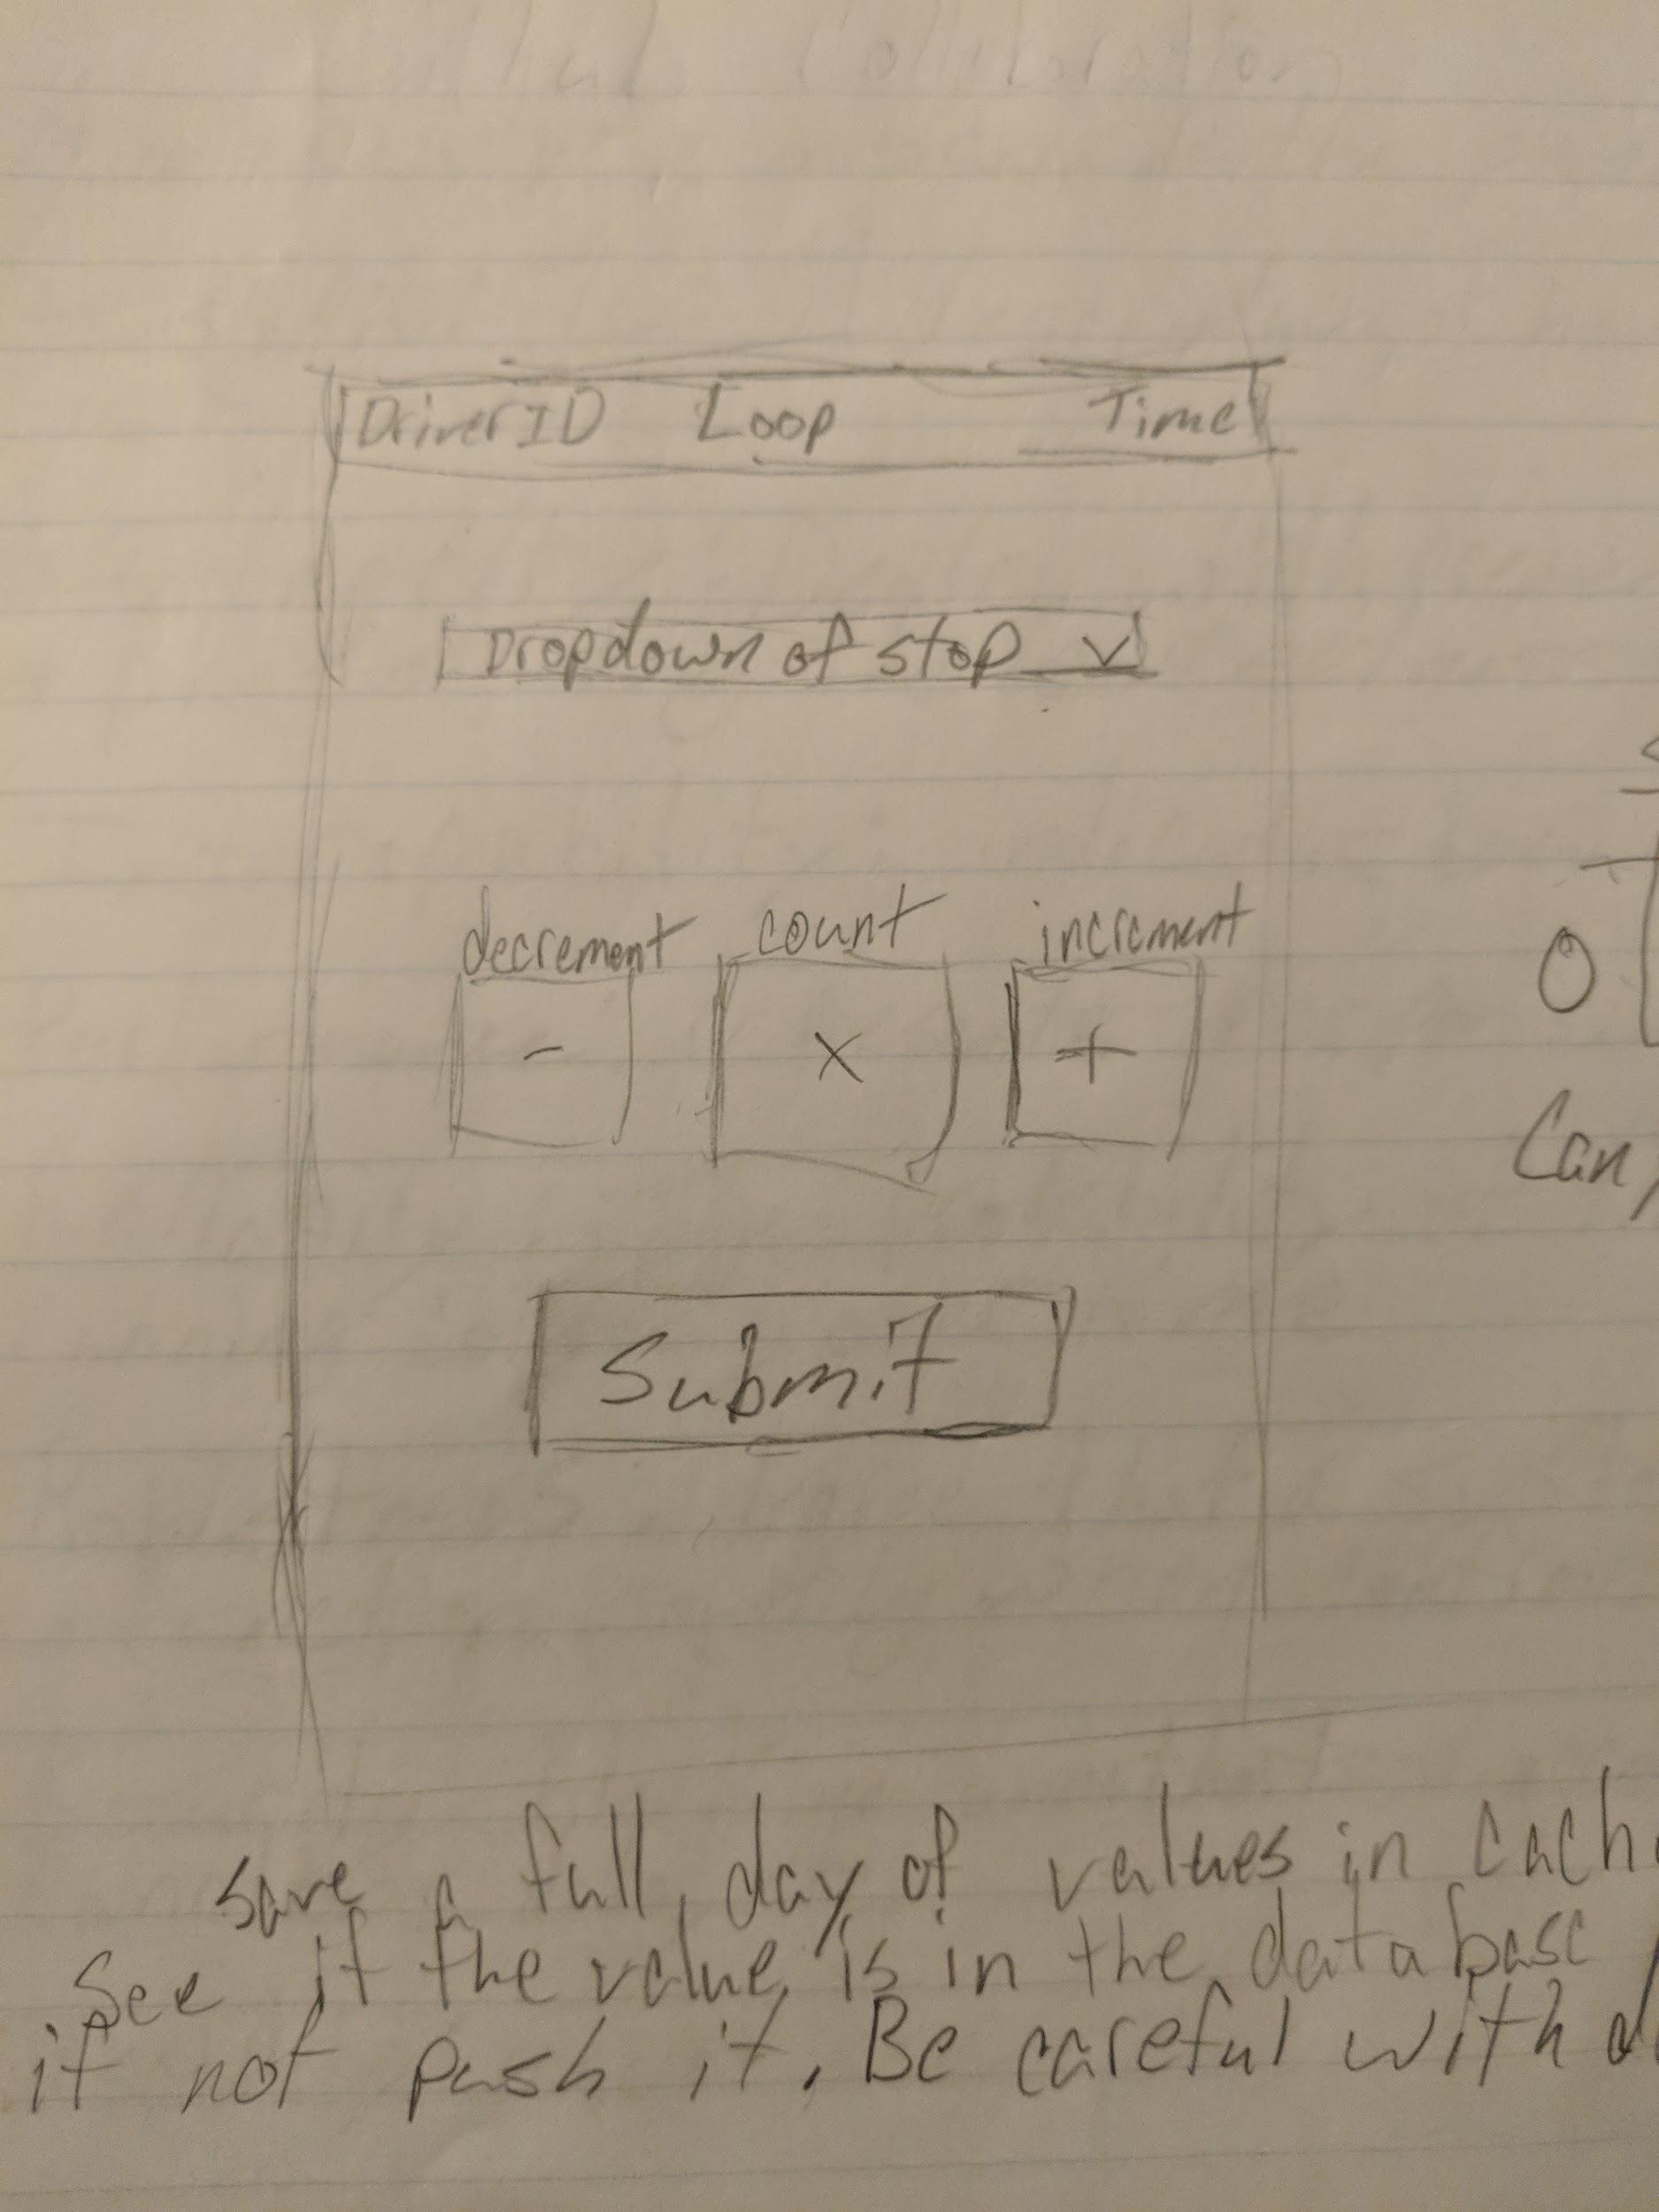 Collibration
DriverID Loop Time
Dropdown of stop V
decrement count increment
- x +
O
Can
Submit
save a full day of values in cach
See if the value is in the database
if not push it. Be careful with d